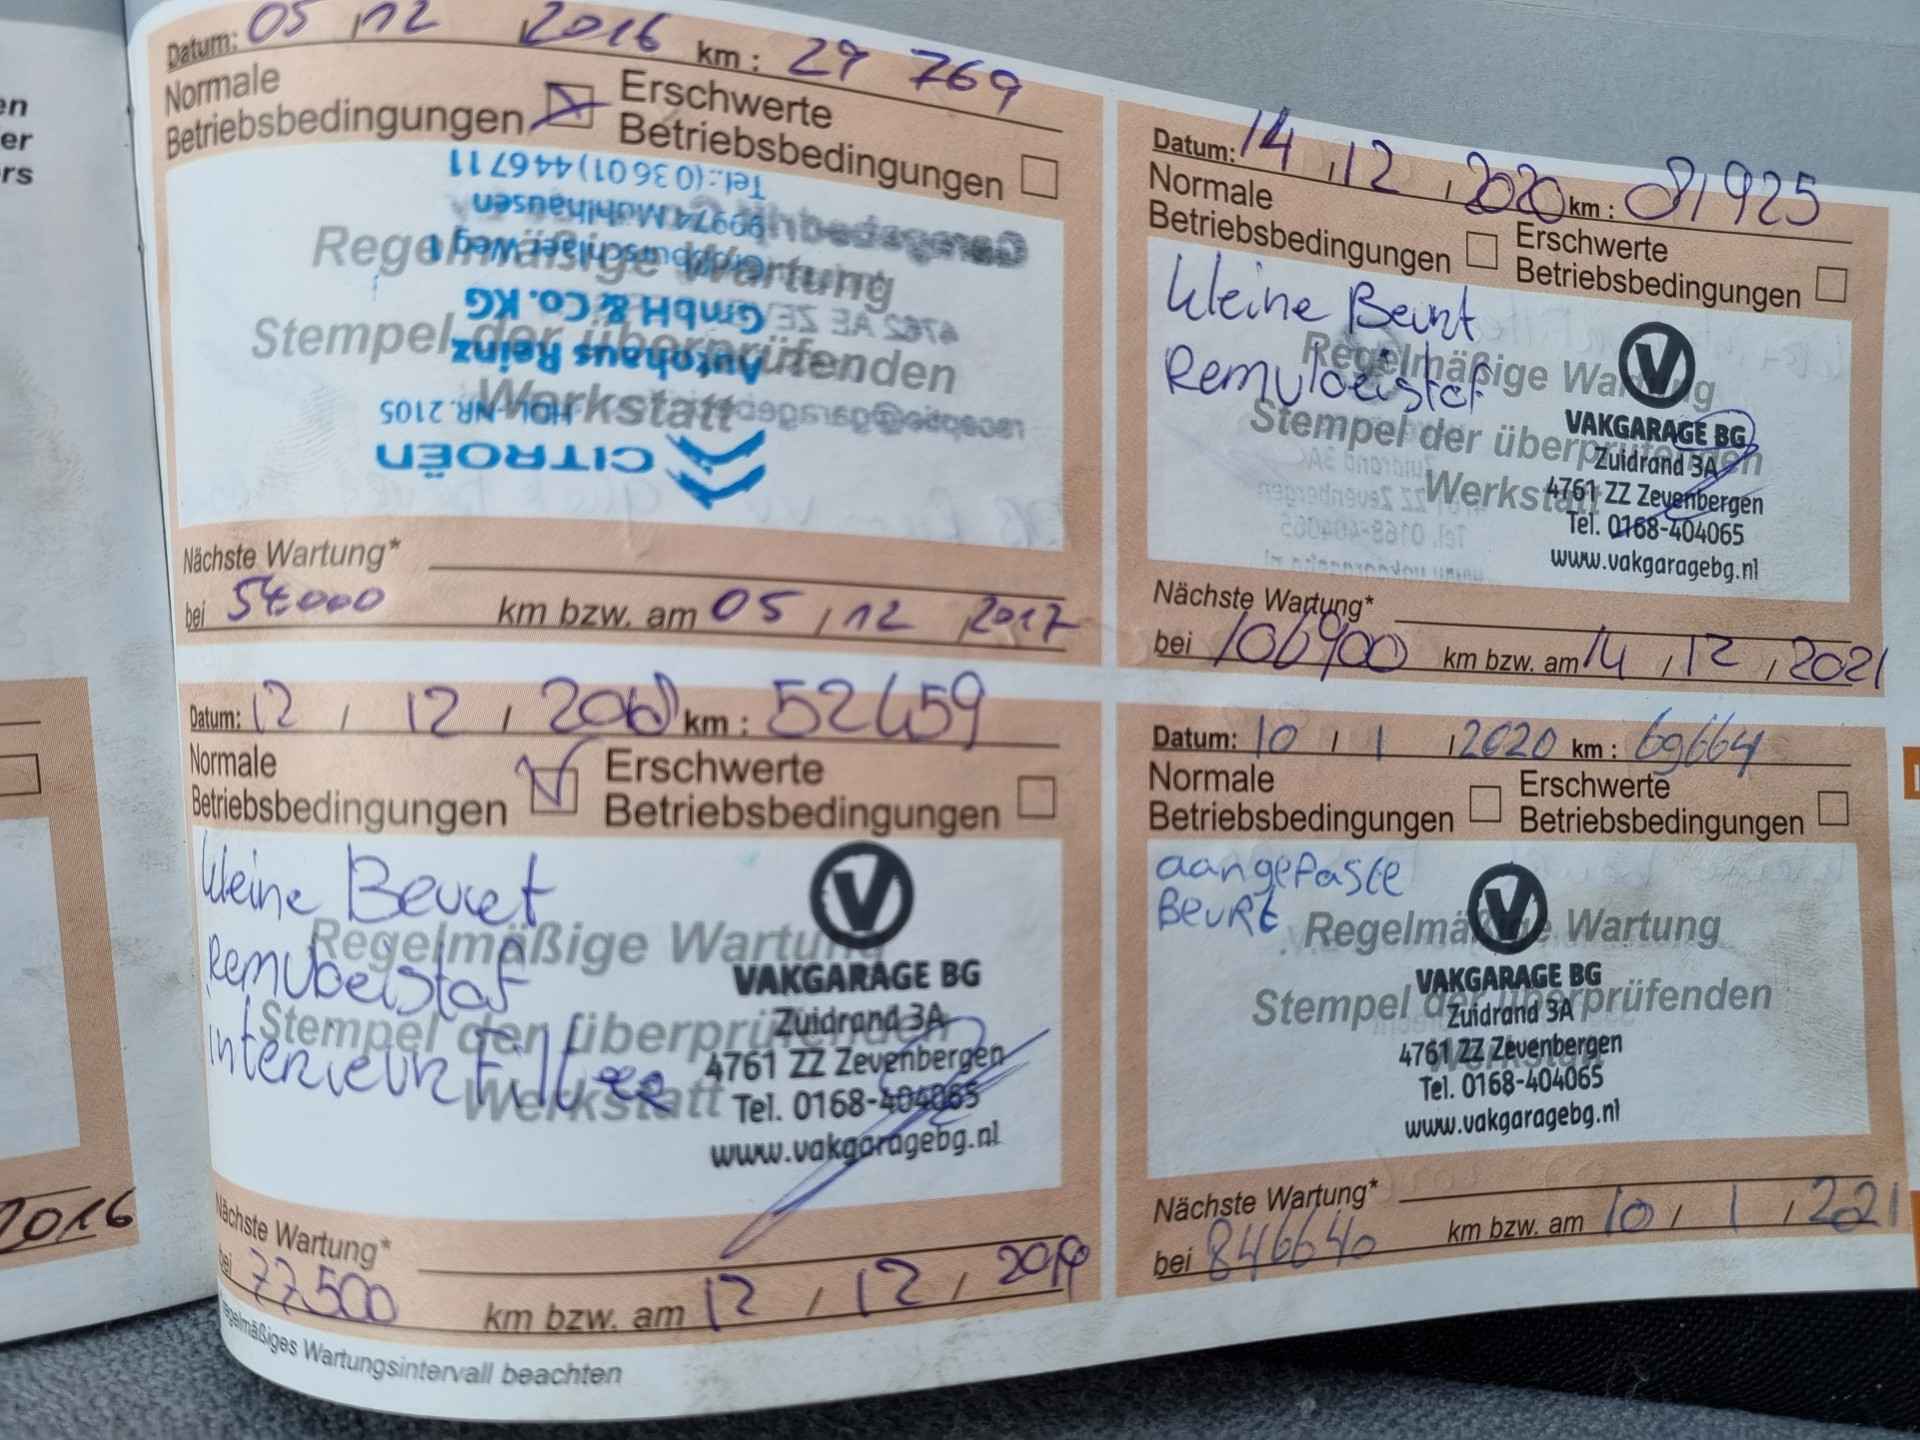 en
er
rs
2016
Datum: 05 , 12 , 2016 km : 29 769
Normale Betriebsbedingungen
Erschwerte Betriebsbedingungen
Regelmäßige Wartung
Stempel der überprüfenden
Werkstatt
CITROËN
HDL-NR. 2105
Autohaus Reinz
GmbH & Co. KG
Großburschlaer Weg 1
99974 Mühlhausen
Tel.: (0 36 01) 44 67 11
Nächste Wartung*
bei 54000 km bzw. am 05 , 12 , 2017
Datum: 12 , 12 , km : 52459
Normale Betriebsbedingungen
Erschwerte Betriebsbedingungen
kleine Beurt
Remvloeistof
interieur Filter
Regelmäßige Wartung
Stempel der überprüfenden
Werkstatt
V
VAKGARAGE BG
Zuidrand 3A
4761 ZZ Zevenbergen
Tel. 0168-404065
www.vakgaragebg.nl
Nächste Wartung*
bei 77500 km bzw. am 12 , 12 , 2019
regelmäßiges Wartungsintervall beachten
Datum: 14 , 12 , 2020 km : 081925
Normale Betriebsbedingungen
Erschwerte Betriebsbedingungen
kleine Beurt
Remvloeistof
Regelmäßige Wartung
Stempel der überprüfenden
Werkstatt
V
VAKGARAGE BG
Zuidrand 3A
4761 ZZ Zevenbergen
Tel. 0168-404065
www.vakgaragebg.nl
Nächste Wartung*
bei 106900 km bzw. am 14 , 12 , 2021
Datum: 10 , 1 , 2020 km : 69664
Normale Betriebsbedingungen
Erschwerte Betriebsbedingungen
aangepaste
Beurt
Regelmäßige Wartung
Stempel der überprüfenden
Werkstatt
V
VAKGARAGE BG
Zuidrand 3A
4761 ZZ Zevenbergen
Tel. 0168-404065
www.vakgaragebg.nl
Nächste Wartung*
bei km bzw. am 10 , 1 , 221